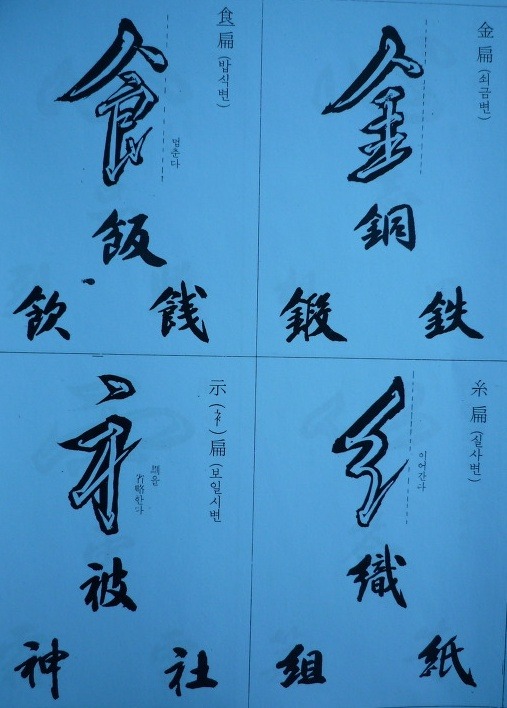 金扁(쇠금변)
金
銅
鍛 鉄
食扁(밥식변)
멈춘다
食
飯
飲 餞
糸扁(실사변)
이어간다
糸
織
組 紙
示(礻)扁(보일시변
省略한다
礻
被
神 社